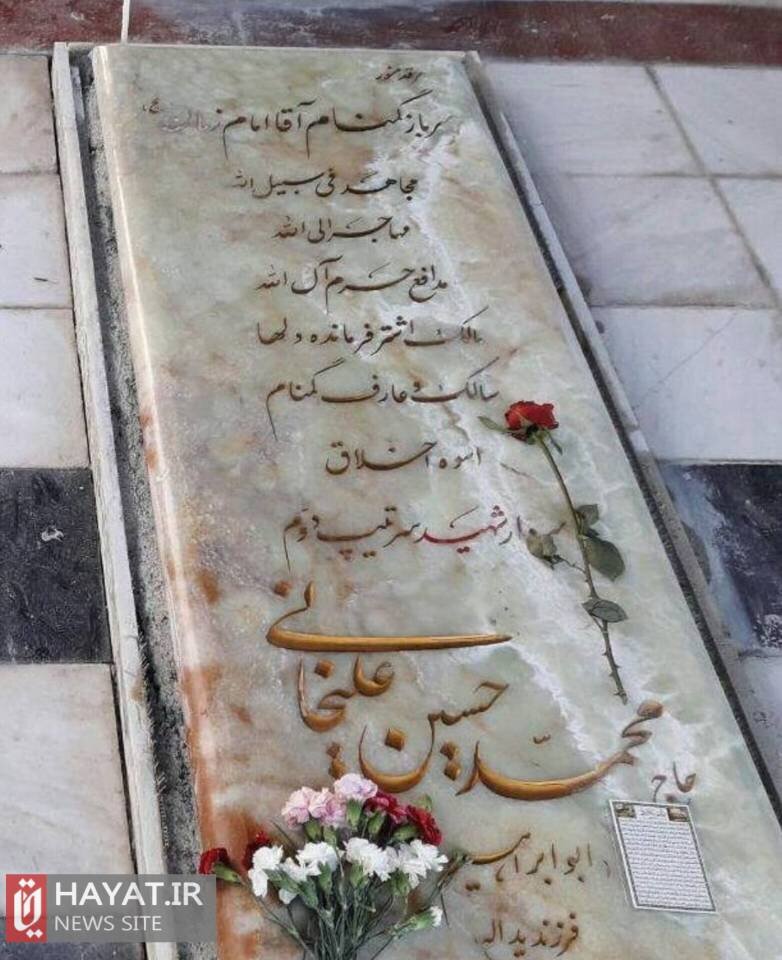 مرقد منور
سرباز گمنام آقا امام زمان عج
مجاهد فی سبیل الله
مهاجر الی الله
مدافع حرم آل الله
مالک اشتر فرمانده دلها
سالک و عارف گمنام
اسوه اخلاق
سردار شهید سرتیپ دوم
حاج محمد حسین علیخانی
ابو ابراهیم
فرزند یداله
HAYAT.IR
NEWS SITE